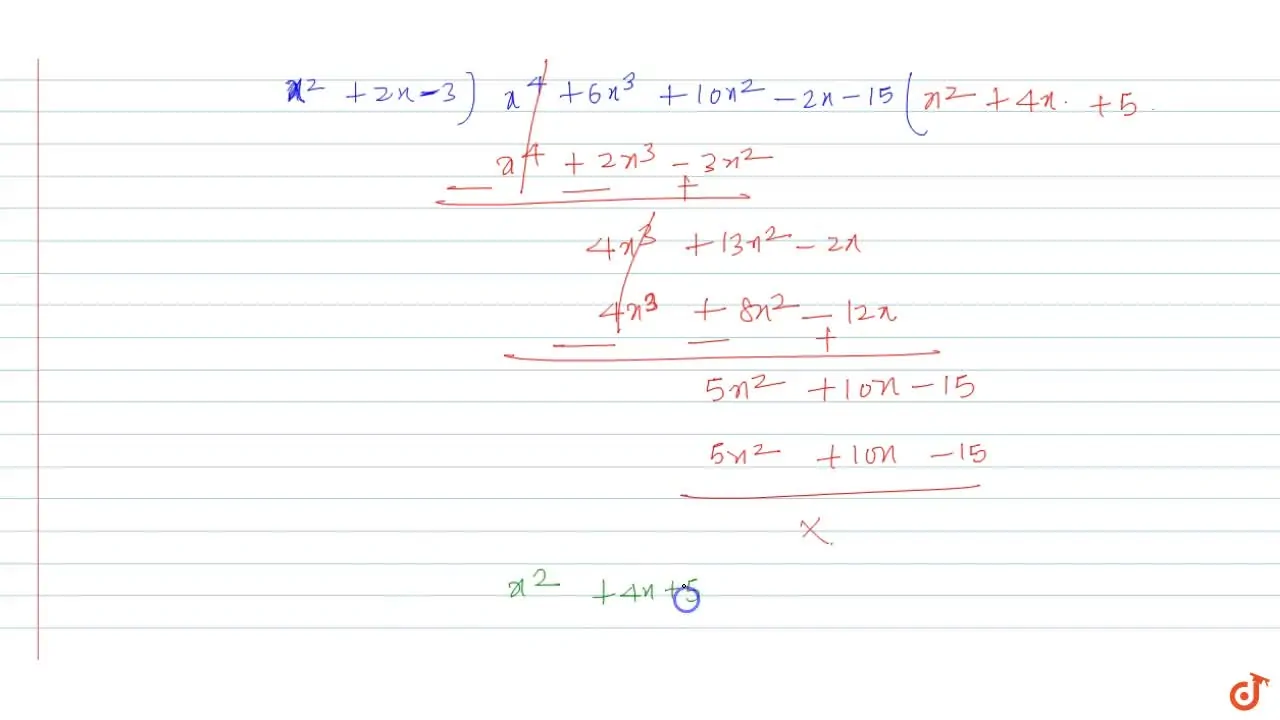 x² + 2x - 3 ) x⁴ + 6x³ + 10x² - 2x - 15 ( x² + 4x + 5
x⁴ + 2x³ - 3x²
— — +
4x³ + 13x² - 2x
4x³ + 8x² - 12x
— — +
5x² + 10x - 15
5x² + 10x - 15
x
x² + 4x + 5